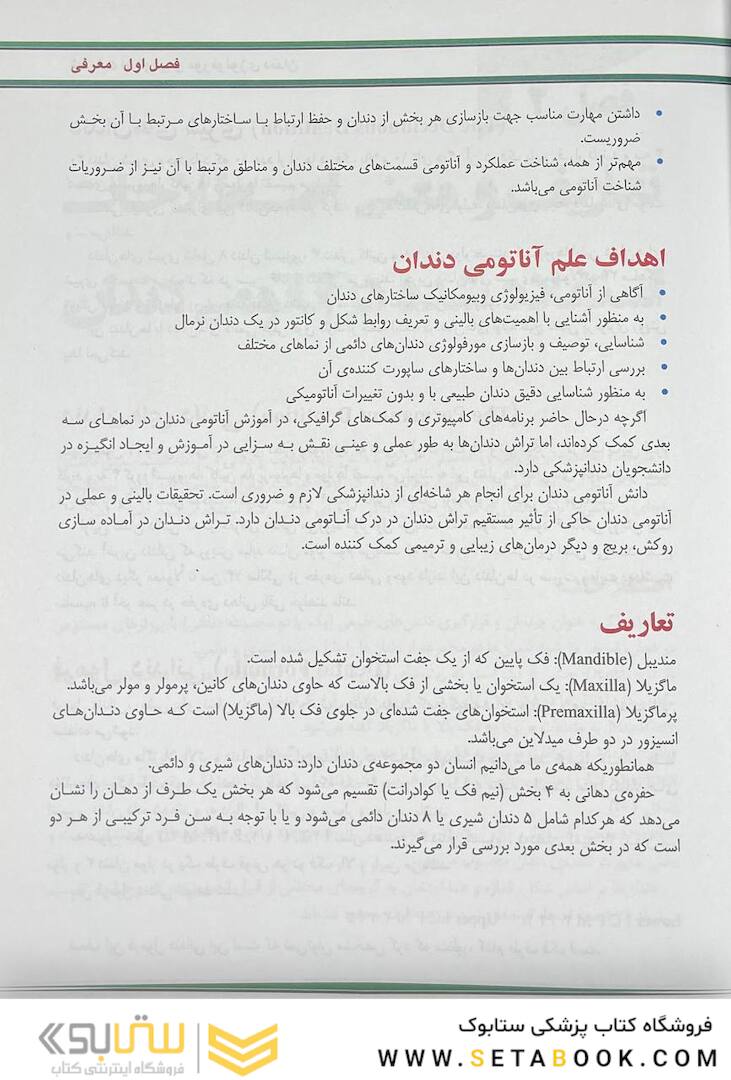 فصل اول معرفی
• داشتن مهارت مناسب جهت بازسازی هر بخش از دندان و حفظ ارتباط با ساختارهای مرتبط با آن بخش
ضروریست.
• مهم‌تر از همه، شناخت عملکرد و آناتومی قسمت‌های مختلف دندان و مناطق مرتبط با آن نیز از ضروریات
شناخت آناتومی می‌باشد.
اهداف علم آناتومی دندان
• آگاهی از آناتومی، فیزیولوژی وبیومکانیک ساختارهای دندان
• به منظور آشنایی با اهمیت‌های بالینی و تعریف روابط شکل و کانتور در یک دندان نرمال
• شناسایی، توصیف و بازسازی مورفولوژی دندان‌های دائمی از نماهای مختلف
• بررسی ارتباط بین دندان‌ها و ساختارهای ساپورت کننده‌ی آن
• به منظور شناسایی دقیق دندان طبیعی با و بدون تغییرات آناتومیکی
اگرچه درحال حاضر برنامه‌های کامپیوتری و کمک‌های گرافیکی، در آموزش آناتومی دندان در نماهای سه
بعدی کمک کرده‌اند، اما تراش دندان‌ها به طور عملی و عینی نقش به سزایی در آموزش و ایجاد انگیزه در
دانشجویان دندانپزشکی دارد.
دانش آناتومی دندان برای انجام هر شاخه‌ای از دندانپزشکی لازم و ضروری است. تحقیقات بالینی و عملی در
آناتومی دندان حاکی از تأثیر مستقیم تراش دندان در درک آناتومی دندان دارد. تراش دندان در آماده سازی
روکش، بریج و دیگر درمان‌های زیبایی و ترمیمی کمک کننده است.
تعاریف
مندیبل (Mandible): فک پایین که از یک جفت استخوان تشکیل شده است.
ماگزیلا (Maxilla): یک استخوان یا بخشی از فک بالاست که حاوی دندان‌های کانین، پرمولر و مولر می‌باشد.
پرماگزیلا (Premaxilla): استخوان‌های جفت شده‌ای در جلوی فک بالا (ماگزیلا) است که حاوی دندان‌های
انسیزور در دو طرف میدلاین می‌باشد.
همانطوریکه همه‌ی ما می‌دانیم انسان دو مجموعه‌ی دندان دارد: دندان‌های شیری و دائمی.
حفره‌ی دهانی به ۴ بخش (نیم فک یا کوادرانت) تقسیم می‌شود که هر بخش یک طرف از دهان را نشان
می‌دهد که هرکدام شامل ۵ دندان شیری یا ۸ دندان دائمی می‌شود و یا با توجه به سن فرد ترکیبی از هر دو
است که در بخش بعدی مورد بررسی قرار می‌گیرند.
فروشگاه کتاب پزشکی ستابوک
WWW.SETABOOK.COM
ستابوک
فروشگاه اینترنتی کتاب